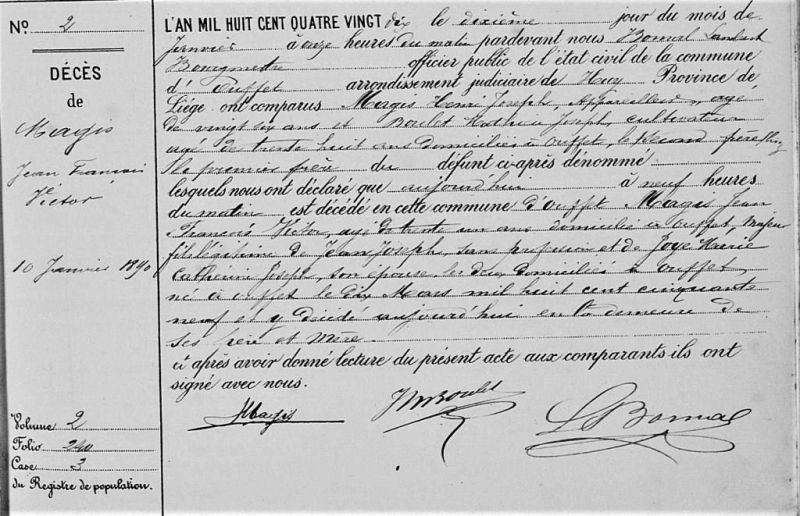 No 2
DÉCÈS
de
Magis
Jean François
Victor
10 Janvier 1890
Volume 2
Folio 240
Case 3
du Registre de population.
L'AN MIL HUIT CENT QUATRE VINGT dix le dixième jour du mois de
Janvier à onze heures du matin pardevant nous Bormal Lambert
Bourgmestre officier public de l'état civil de la commune
d' Ouffet arrondissement judiciaire de Huy Province de
Liége ont comparus Magis Henri Joseph, Appareilleur, agé
de vingt six ans et Boulet Mathieu Joseph, cultivateur
agé de trente huit ans domiciliés à Ouffet, le second
le premier frère du défunt ci-après dénommé
lesquels nous ont déclaré que aujourd'hui à neuf heures
du matin est décédé en cette commune d'ouffet Magis Jean
François Victor, agé de trente un ans domicilié à Ouffet, Majeur
fils légitime de Jean Joseph, sans profession et de Joye Marie
Catherine Joseph, son épouse, ses deux domiciliés à Ouffet,
né à Ouffet le dix Mars mil huit cent cinquante
neuf et y décédé aujourd'hui en la demeure de
ses père et mère.
et après avoir donné lecture du présent acte aux comparants ils ont
signé avec nous.
HMagis JMBoulet LBormal